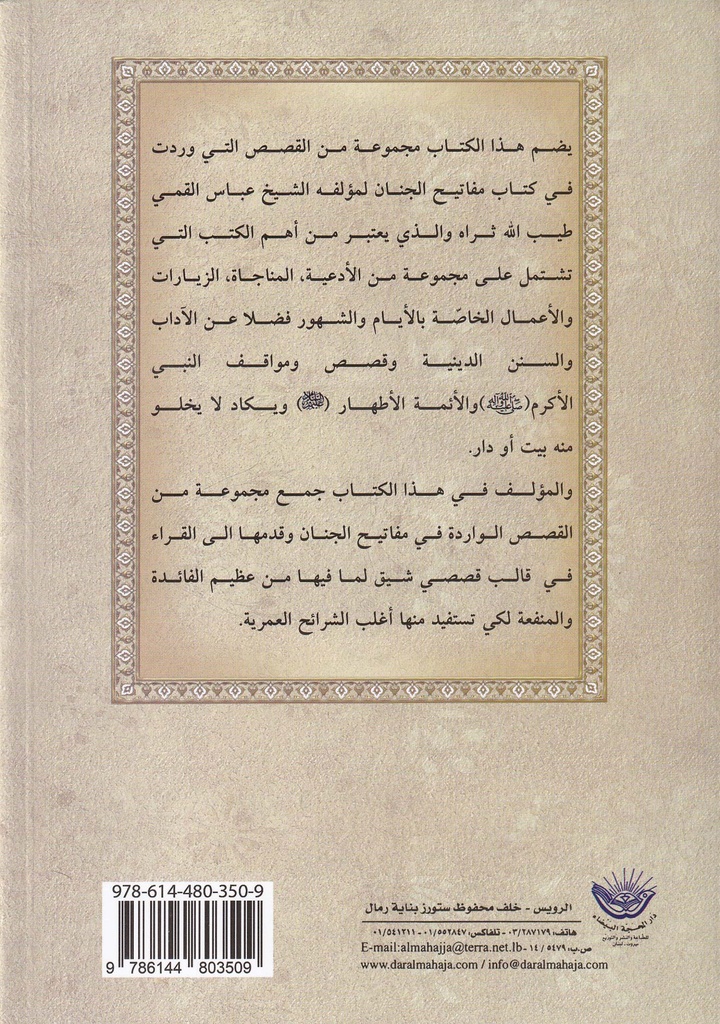 يضم هذا الكتاب مجموعة من القصص التي وردت
في كتاب مفاتيح الجنان لمؤلفه الشيخ عباس القمي
طيب الله ثراه والذي يعتبر من أهم الكتب التي
تشتمل على مجموعة من الأدعية، المناجاة، الزيارات
والأعمال الخاصّة بالأيام والشهور فضلا عن الآداب
والسنن الدينية وقصص ومواقف النبي
الأكرم(ﷺ)والأئمة الأطهار () ويكاد لا يخلو
منه بيت أو دار.
والمؤلف في هذا الكتاب جمع مجموعة من
القصص الواردة في مفاتيح الجنان وقدمها الى القراء
في قالب قصصي شيق لما فيها من عظيم الفائدة
والمنفعة لكي تستفيد منها أغلب الشرائح العمرية.
978-614-480-350-9
9 786144 803509
الرويس - خلف محفوظ ستورز بناية رمال
هاتف: ٠٣/٢٨٧١٧٩ - تلفاكس: ٠١/٥٥٢٨٤٧ - ٠١/٥٤١٢١١
ص.ب: ٥٤٧٩ / ١٤ - E-mail:almahajja@terra.net.lb
www.daralmahaja.com / info@daralmahaja.com
دار المحجة البيضاء
للطباعة والنشر والتوزيع
بيروت - لبنان